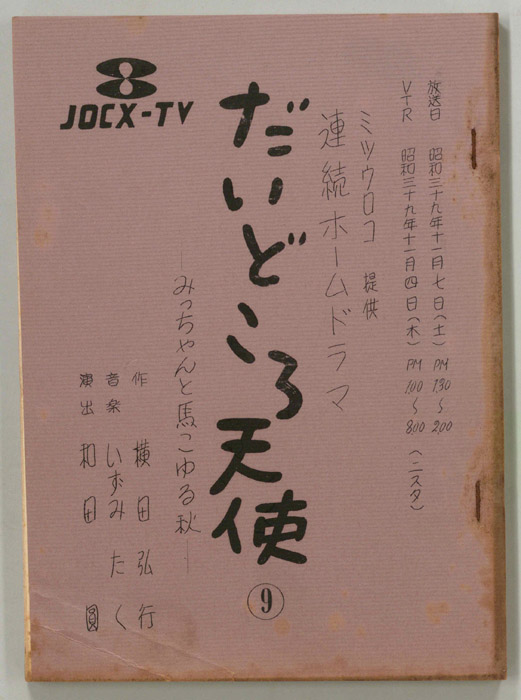 放送日 昭和三十九年十一月七日(土) PM 1:30～2:00
VTR 昭和三十九年十一月四日(木) PM 1:00～8:00 (ニスタ)
ミツウロコ 提供
連続ホームドラマ
だいどころ天使
⑨
―みっちゃんと馬こゆる秋―
作 横田弘行
音楽 いずみたく
演出 和田 圓
JOCX-TV